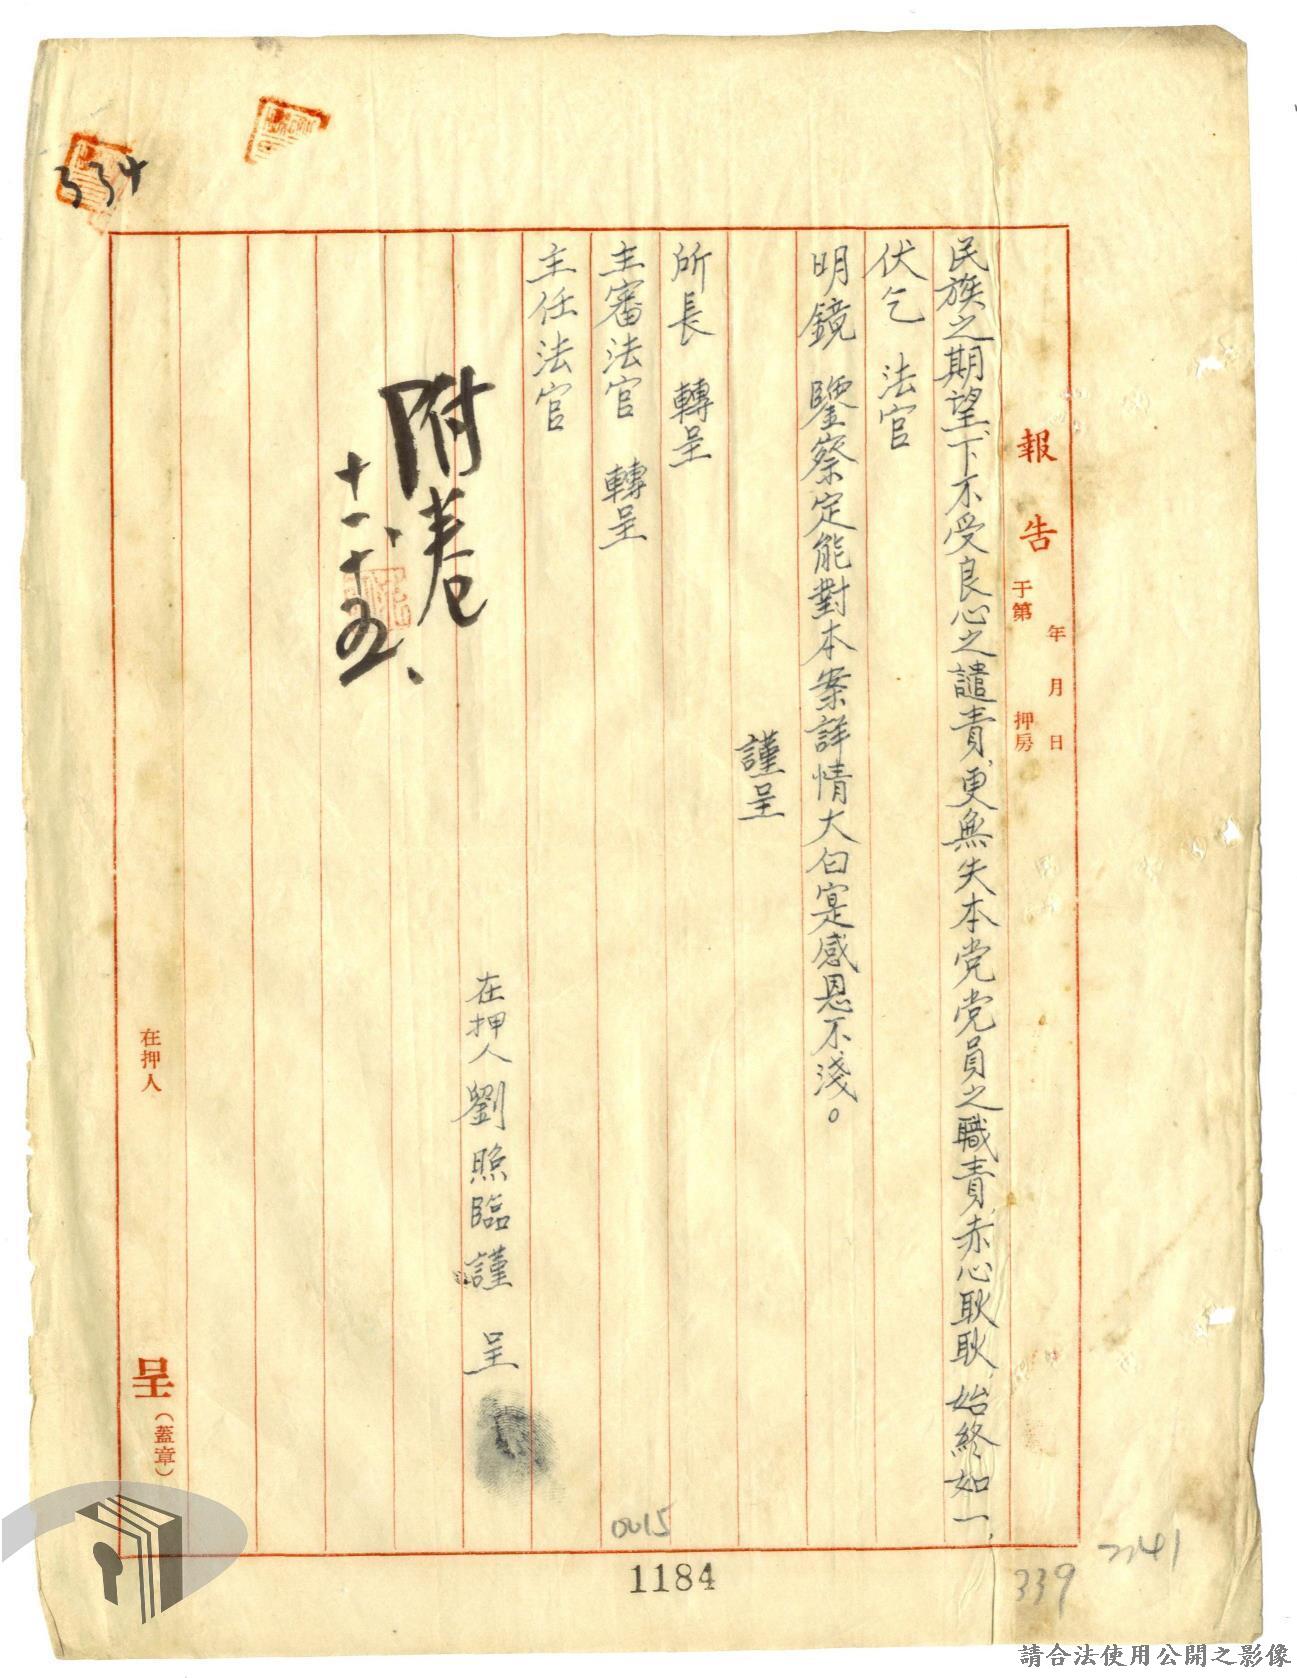 報告
年 月 日
于第 押房
民族之期望、下不受良心之譴責、更無失本党党員之職責、赤心耿耿、始終如一、
伏乞 法官
明鏡 鑒察定能對本案詳情大白寔感恩不淺。
謹呈
所長 轉呈
主審法官 轉呈
主任法官
在押人 劉照臨 謹呈
附卷
十一、十五、
在押人
呈（蓋章）
334
0015
1184
339
請合法使用公開之影像